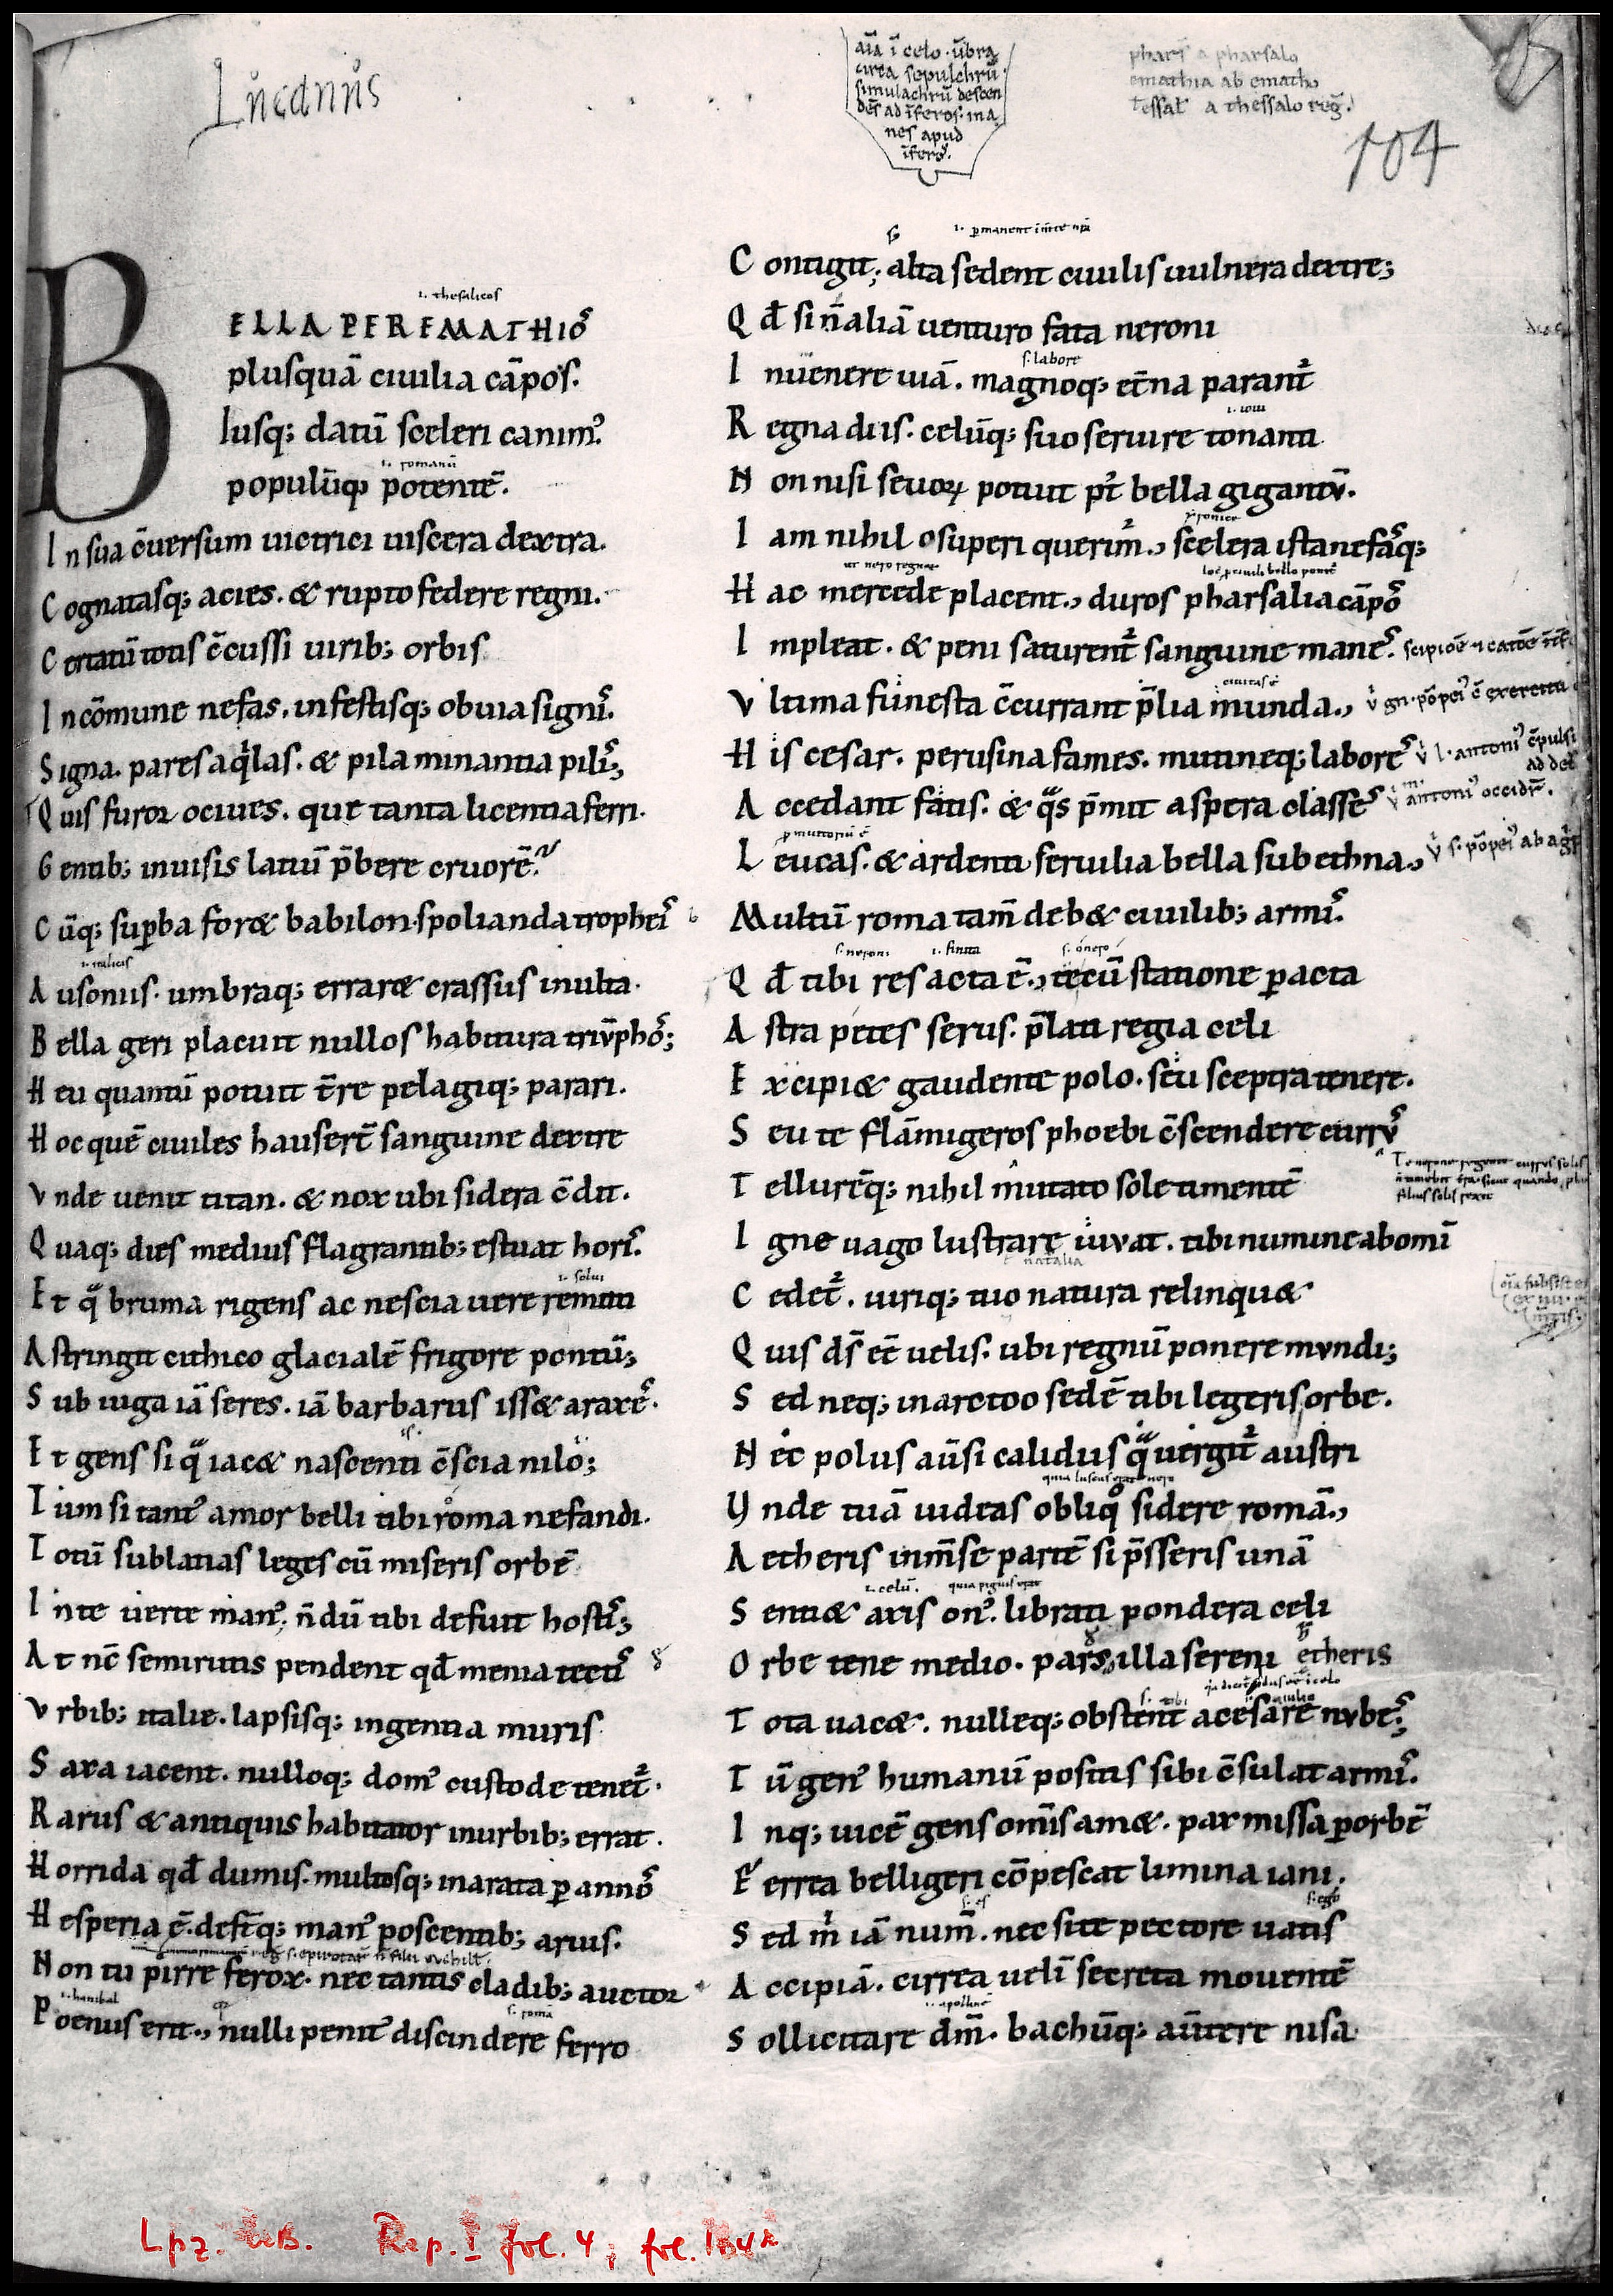 Lucanus
aīa ī celo. ūbra
circa sepulchrū.
simulachrū descen
dēs ad īferos. ma
nes apud
īferoꝰ.
phars̄ a pharsalo
emathia ab ematho
tessal̄ a thessalo reḡ.
104
.i. thesalicos
BELLA PER EMATHIOꝰ
plusquā ciuilia cāpos.
Iusq; datū sceleri canimꝰ.
.i. romanū
populūq; potentē.
In sua c̄uersum uictrici uiscera dextra.
Cognatasq; acies. & rupto federe regni.
Certatū totis c̄cussi uirib; orbis
In cōmune nefas. infestisq; obuia signiꝰ.
Signa. pares aqͥlas. & pila minantia piliꝰ;
Quis furor o ciues. que tanta licentia ferri.
Gentib; inuisis latiū p̄bere cruorē.
Cūq; suꝑba foret babilon spolianda tropheiꝰ
.i. italicis
Ausoniis. umbraq; erraret crassus inulta.
Bella geri placuit nullos habitura triūphoꝰ;
Heu quantū potuit t̄re pelagiq; parari.
Hoc quē ciuiles hauserē sanguine dextre
Vnde uenit titan. & nox ubi sidera c̄dit.
Quaq; dies medius flagrantib; estuat horiꝰ.
.i. solui
Et qᷓ bruma rigens ac nescia uere remitti
Astringit cithico glacialē frigore pontū;
Sub iuga iā seres. iā barbarus isset araxeꝰ.
Et gens si qᷓ iacet nascenti c̄scia nilo;
Tum si tantꝰ amor belli tibi roma nefandi.
Totū sub latias leges cū miseris orbē
In te uerte manꝰ. n̄dū tibi defuit hostiꝰ;
At nc̄ semirutis pendent qd̄ menia tectiꝰ
Vrbib; italie. lapsisq; ingentia muris
Saxa iacent. nulloq; domꝰ custode tenet᷑.
Rarus & antiquis habitator in urbib; errat.
Horrida qd̄ dumis. multosq; inarata ꝑ annoꝰ
Hesperia ē. desītq; manꝰ poscentib; aruis.
Non tu pirre ferox. nec tantis cladib; auctor
.i. hanibal
.s. romā
Poenus erit., nulli penitꝰ discindere ferro
.i. ꝑmanent
Contigit; alta sedent ciuilis uulnera dextre;
Qd̄ si n̄ aliā uenturo fata neroni
.s. labore
Inuenere uiā. magnoq; et̄na parant᷑
.i. ioui
Regna diis. celūq; suo seruire tonanti
Non nisi seuoꝝ potuit pt᷑ bella gigantū.
Iam nihil o superi querim᷑., scelera ista nefaꝰq;
Hac mercede placent., duros pharsalia cāpoꝰ
Impleat. & peni saturent᷑ sanguine maneꝰ.
Vltima funesta c̄currant p̄lia munda.,
His cesar. perusina fames. mutineq; laboreꝰ
Accedant fatis. & qᷓs p̄mit aspera classeꝰ
Leucas. & ardenti seruilia bella sub ethna.,
Multū roma tam̄ debet ciuilib; armiꝰ.
.s. neroni .i. finita
Qd̄ tibi res acta ē., tecū statione ꝑacta
Astra petes serus. p̄lati regia celi
Excipiet gaudente polo. seu sceptra tenere.
Seu te flāmigeros phoebi c̄scendere currūꝰ
Tellurēq; nihil mutato sole timentē
Igne uago lustrare iuuat. tibi numine ab omī
Cedet᷑. iurisq; tuo natura relinquet
Quis ds̄ eē uelis. ubi regnū ponere mundi;
Sed neq; in arctoo sedē tibi legeris orbe.
Nec polus aūsi calidus qᷓ uergit᷑ austri
Vnde tuā uideas obliqͦ sidere romā.,
Aetheris inm̄se partē si p̄sseris unā
.i. celū.
Sentiet axis onꝰ. librati pondera celi
Orbe tene medio. pars illa sereni etheris
Tota uacet. nulleq; obstent a cesare nubeꝰ;
Tū genꝰ humanū positis sibi c̄sulat armiꝰ.
Inq; uicē gens om̄is amet. pax missa ꝑ orbē
Ferrea belligeri cōpescat limina iani.
.s. es .s. ego
Sed mͥ iā num̄. nec si te pectore uatis
Accipiā. cirrea uelī secreta mouentē
.i. apollinē
Sollicitare dm̄. bachūq; auītere nisa
Lpz. UB. Rep. I fol. 4; fol. 104ᴿ